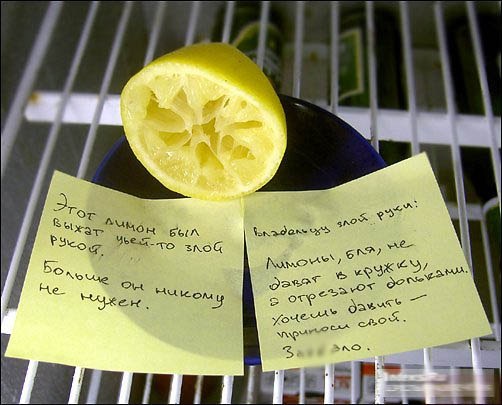 Этот лимон был
выжат чьей-то злой
рукой.
Больше он никому
не нужен.
Владельцу злой руки:
Лимоны, бля, не
дават в кружку,
а отрезают дольками.
хочешь давить —
приноси свой.